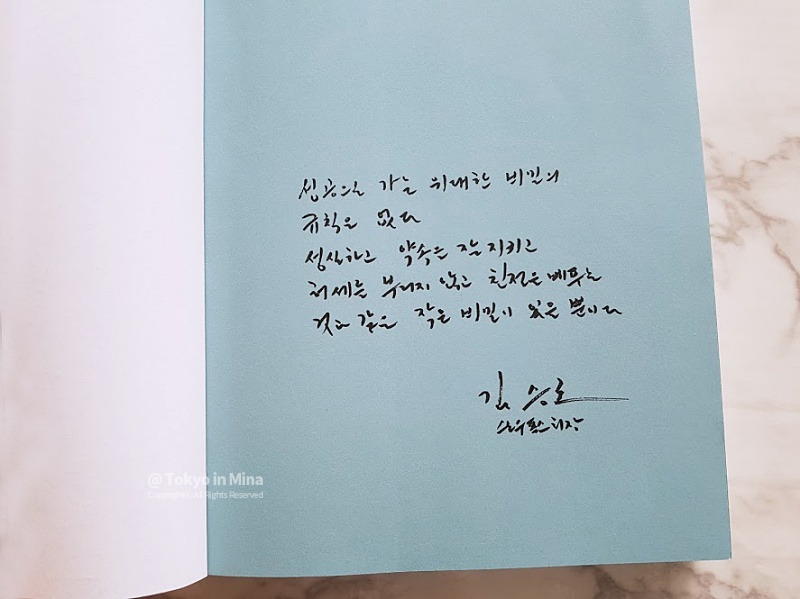 성공으로 가는 위대한 비밀의
규칙은 없다
성실하고 약속은 잘 지키고
허세를 부리지 않고 친절을 베푸는
것과 같은 작은 비밀이 있을 뿐이다
김승호
스노우폭스 회장
@ Tokyo in Mina
All Rights Reserved